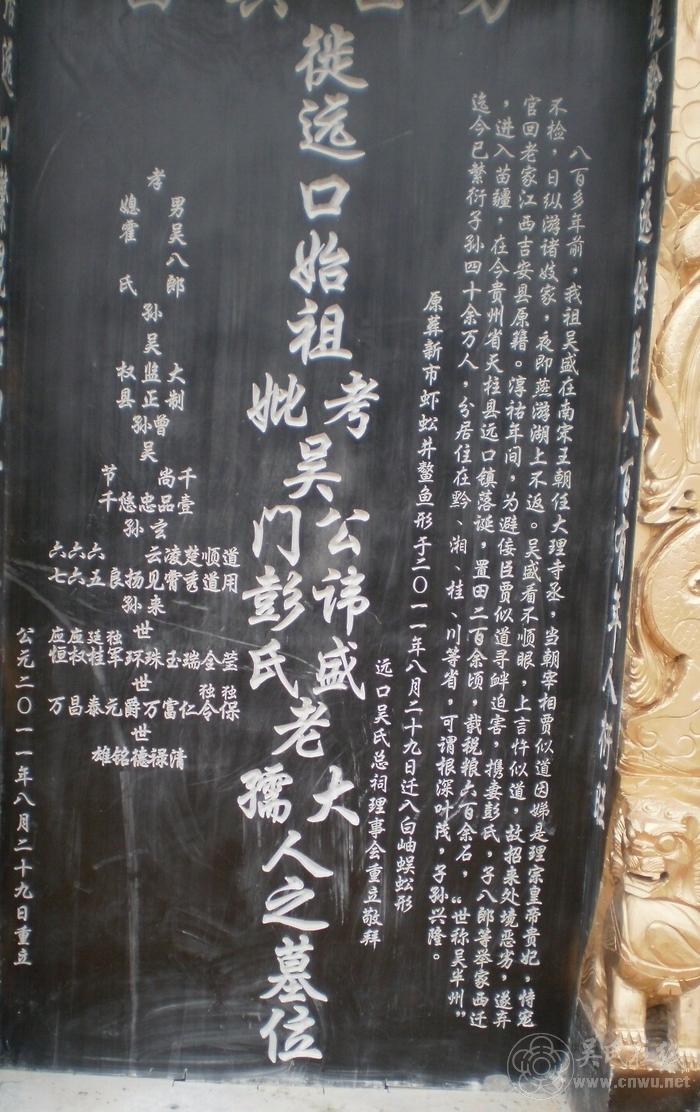 八百多年前，我祖吴盛在南宋王朝任大理寺丞，当朝宰相贾似道因娣是理宗皇帝贵妃，恃宠
不检，日纵游诸妓家，夜即燕游湖上不返。吴盛看不顺眼，上言忤似道，故招来处境恶劣，遂弃
官回老家江西吉安县原籍。淳祜年间，为避佞臣贾似道寻衅迫害，携妻彭氏，子八郎等举家西迁
，进入苗疆，在今贵州省天柱县远口镇落诞，置田二百余顷，载税粮六百余石，“世称吴半州”
迄今已繁衍子孙四十余万人，分居住在黔、湘、桂、川等省，可谓根深叶茂，子孙兴隆。
原葬新市虾蚣井鳌鱼形于二〇一一年八月二十九日迁入白岫蜈蚣形
远口吴氏总祠理事会重立敬拜
徙远口始祖
考吴公讳盛老大人之墓位
妣吴门彭氏老孺人之墓位
孝男吴八郎
媳霍氏
孙吴大制
监正
权县
曾孙吴千壹
尚品
忠
悠
节千
玄孙
道用
顺道
楚秀
凌霄
云见
扬
良
六五
六六
六七
来孙
世莹
全
瑞
玉
珠
环
独军
廷桂
应权
应恒
世独保
独令
仁
富
万
爵
元
泰
昌
万
世清禄德铭雄
公元二〇一一年八月二十九日重立
吴氏在线
www.cnwu.net